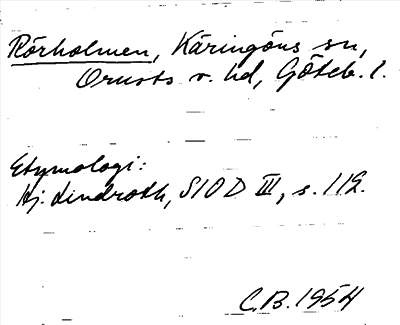 Rörholmen, Käringöns sn,
Orusts v. hd, Göteb. l.
Etymologi:
Hj. Lindroth, SIOD III, s. 112.
C.B. 1954